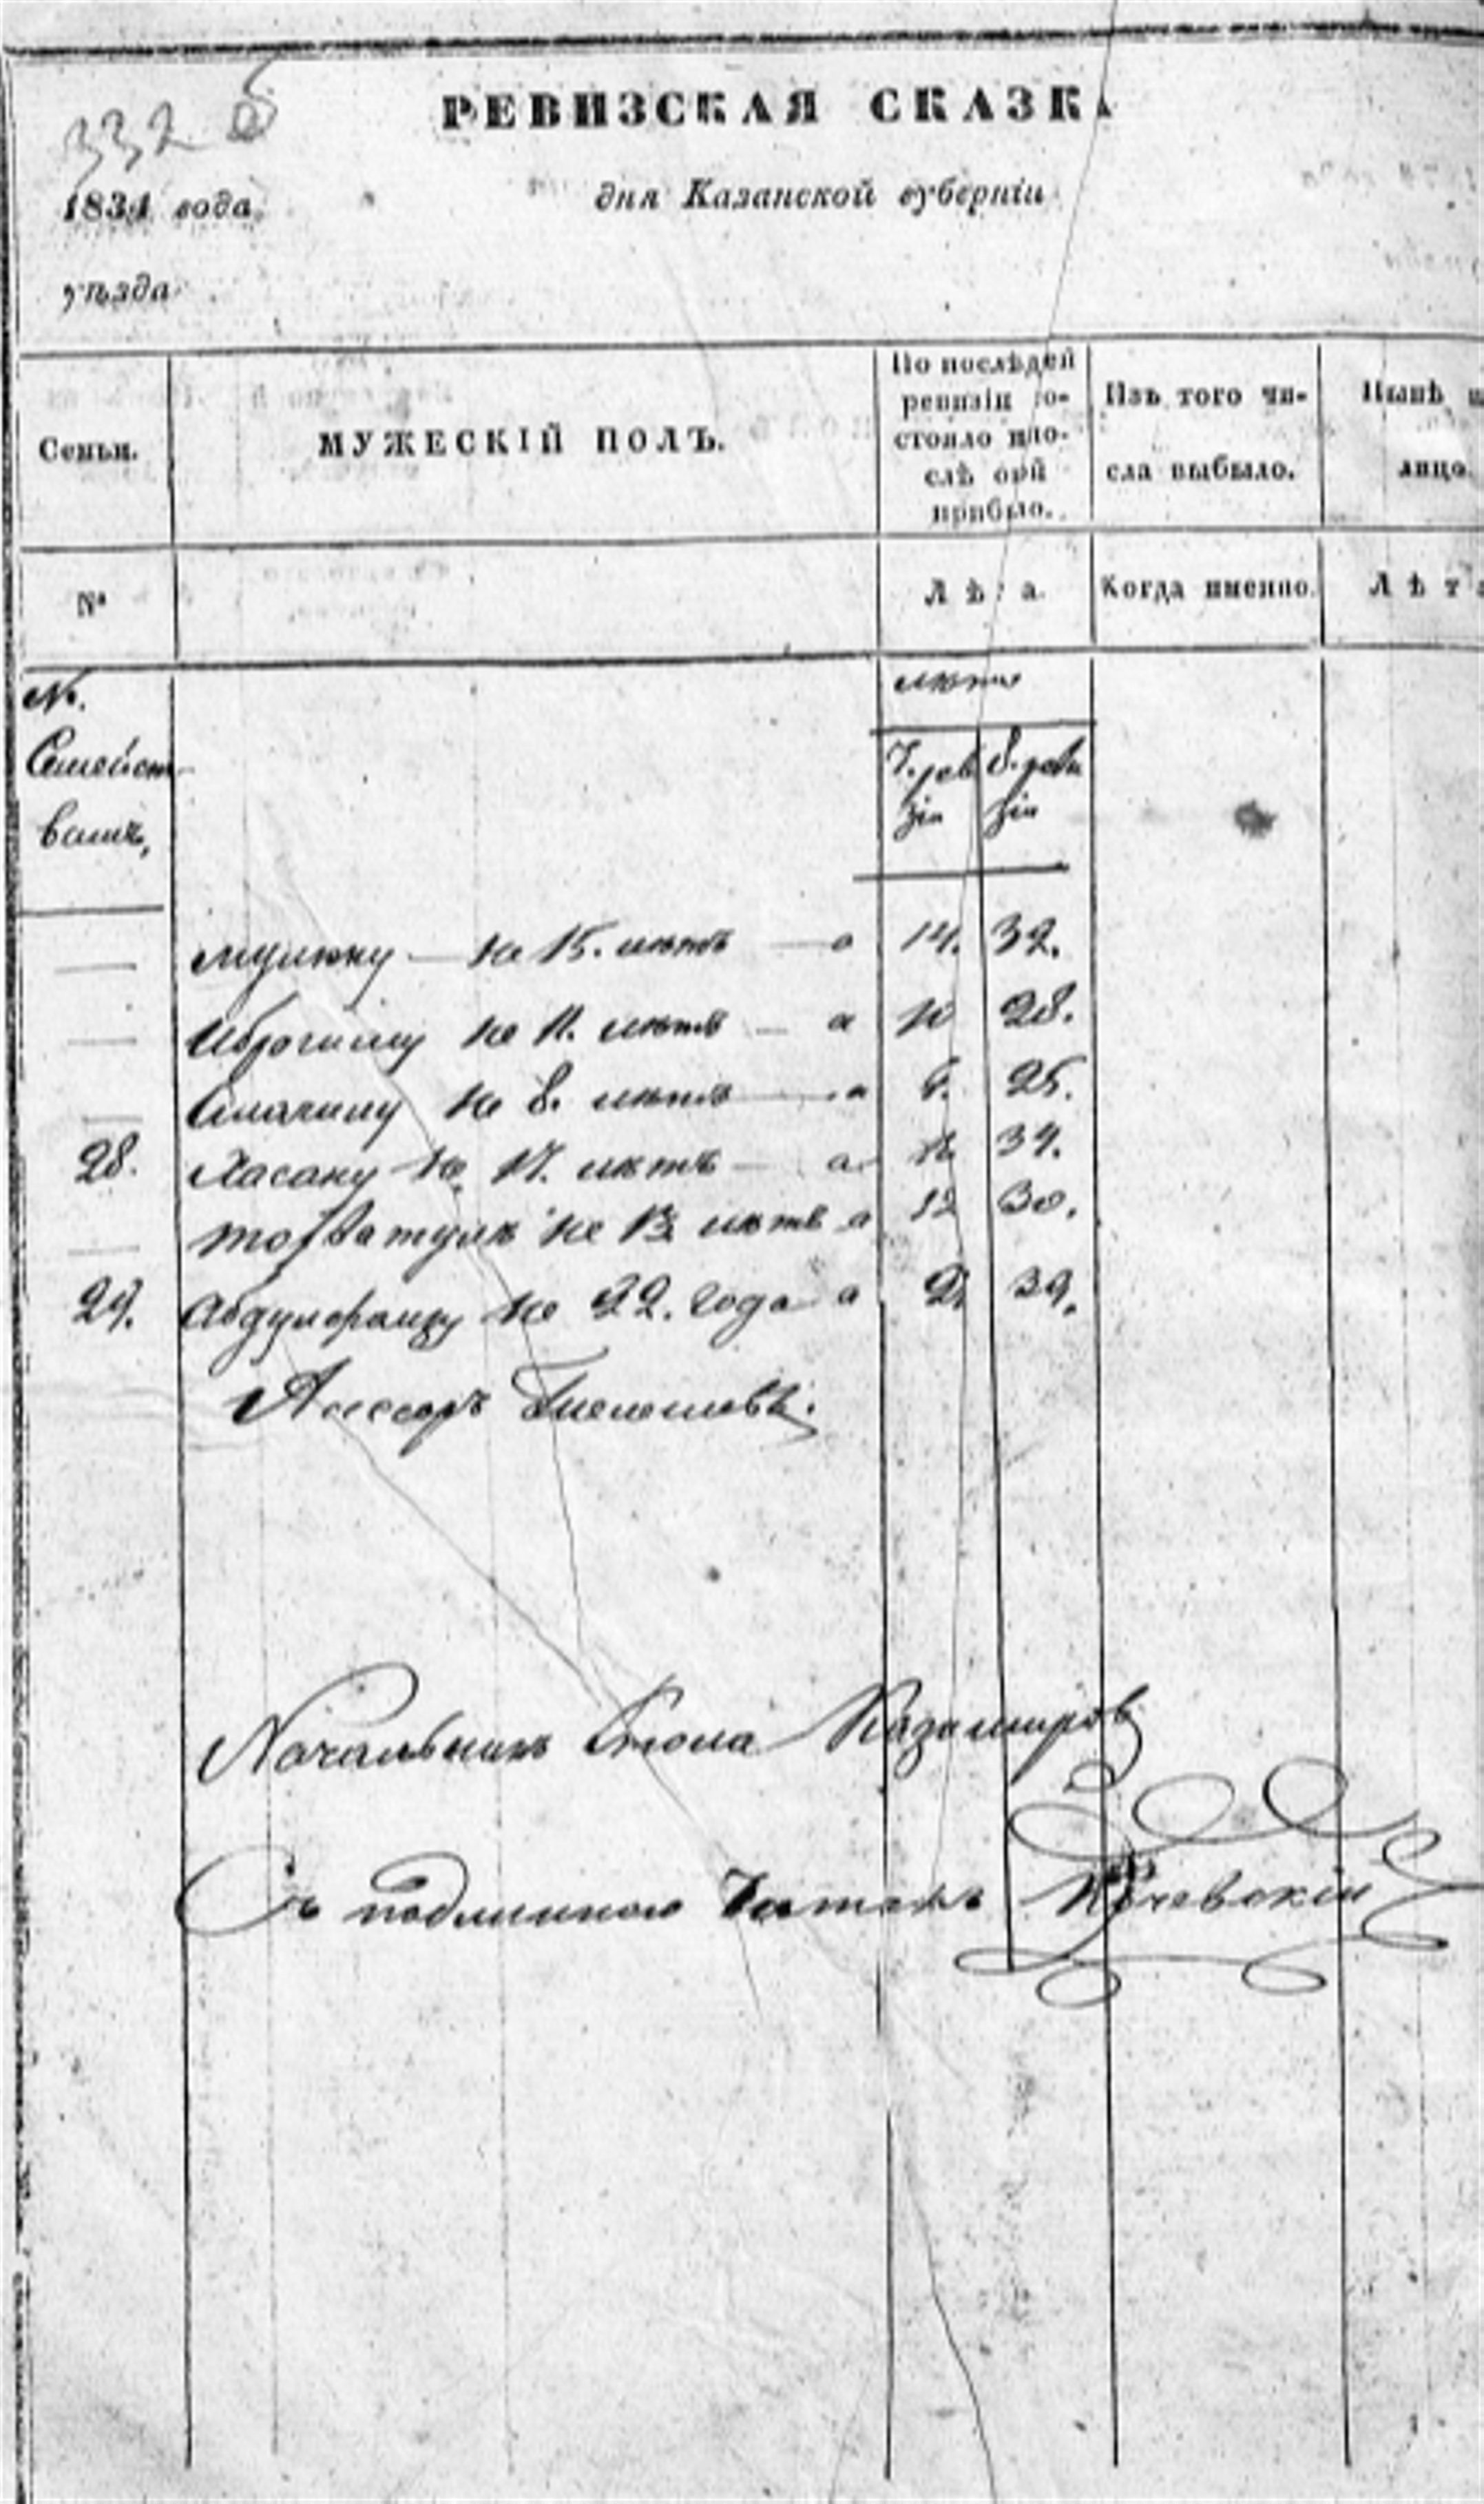 332 б
РЕВИЗСКАЯ СКАЗКА
1834 года дня Казанской губерніи
уѣзда
Семьи.
МУЖЕСКІЙ ПОЛЪ.
По послѣдней ревизіи состояло и послѣ оной прибыло.
Изъ того числа выбыло.
Нынѣ
лицо.
№
Лѣта.
Когда именно.
Лѣта
№.
Семейст-
вамъ,
лѣта
7. реви
зіи
8. реви
зіи
не 15. лѣтъ — а 14. 32.
Иброгиму не 11. лѣтъ — а 10 28.
не 8. лѣтъ — а 25.
28. Хасану не 17. лѣтъ — а 34.
не 13 лѣтъ а 12 30.
29. не 22. года а 39.
Асессоръ
Начальникъ Стола Казимиров
Съ подлинною читалъ